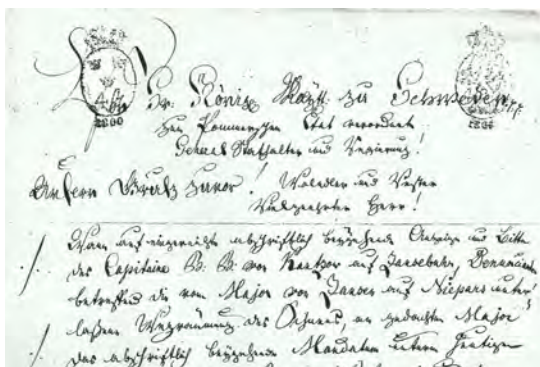 Sr. Königl. Maytt. zu Schweden pp.
zum Pommerschen Etat verordnete
General Statthalter und Regierung!
1800
Unsern Gruß zuvor! Woledler und Vester
Vielgeehrter Herr!
Wann auf eingereichte abschriftlich beygehende Anzeige und Bitte
des Capitaine von auf
betreffend die vom Major von auf Niepars unter
laßene Wegräumung des Schnees, an gedachten Major
das abschriftlich beygehende Mandatum unterm heutigen